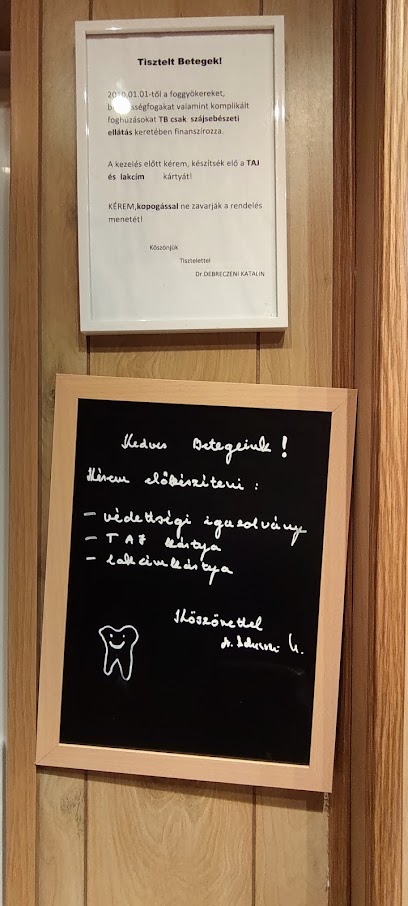 Tisztelt Betegek!
2010.01.01-től a foggyökereket,
bölcsességfogakat valamint komplikált
foghúzásokat TB csak szájsebészeti
ellátás keretében finanszírozza.
A kezelés előtt kérem, készítsék elő a TAJ
és lakcím kártyát!
KÉREM,kopogással ne zavarják a rendelés
menetét!
Köszönjük
Tisztelettel
Dr.DEBRECZENI KATALIN
Kedves Betegeink!
Kérem előkészíteni:
- védettségi igazolvány
- TAJ kártya
- lakcímkártya
Köszönettel
dr. K.